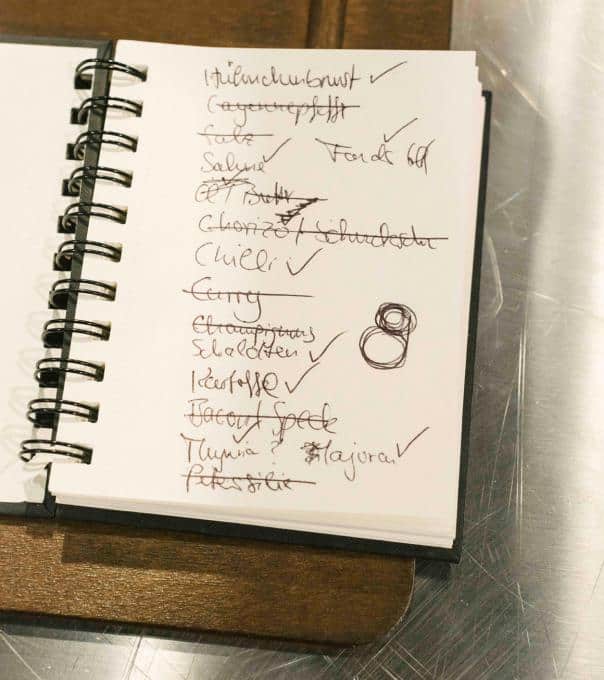 Hühnchenbrust ✓
Cayennepfeffer
Salz
Sahne ✓ Fond ✓
Öl / Butter
Chorizo /
Chilli ✓
Curry
Champignons
Schalotten ✓
Kartoffel ✓
Bacon / Speck
Thymian ? Majoran ✓
Petersilie
8